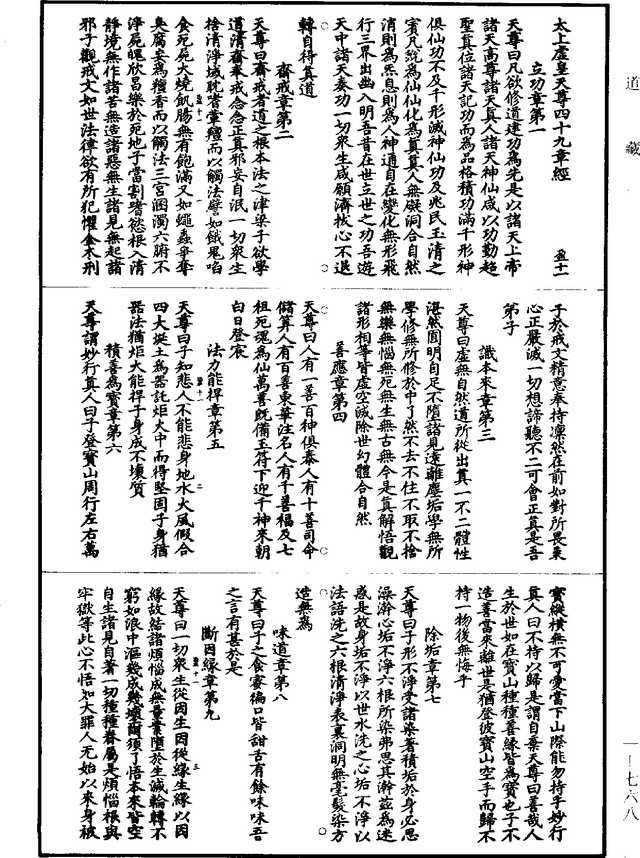 道藏
太上虛皇天尊四十九章經
盈十一
立功章第一
天尊曰凡欲修道建功爲先是以諸天上帝
諸天高尊諸天真人諸天神仙咸以功勤超
聖真位諸天記功而爲品格積功滿千形神
俱仙功不及千形滅神仙功及兆民玉清之
賓凡蛻爲仙仙化爲真真人無礙洞合自然
消則爲炁息則爲人神通自在變化無形飛
行三界出幽入明吾昔在世立世之功吾遊
天中諸天奏功一切衆生咸願濟拔心不退
轉自得真道
齋戒章第二
天尊曰齋戒者道之根本法之津梁子欲學
道清齋奉戒念念正真邪妄自泯一切衆生
捨清淨域耽嘗葷羶而以觸法譬如餓鬼啗
食死屍火燒飢腸無有飽滿又如蠅蟲爭奪
臭腐妄爲羶香而以觸法三宮溷濁六腑不
淨屍魄欣昌樂於死地子當割嗜慾根入清
靜境無作諸苦無造諸惡無生諸見無起諸
邪子觀戒文如世法律欲有所犯懼金木刑
子於戒文精意奉持凜然在前如對所畏秉
心正嚴滅一切想諦聽不二可會正真是吾
弟子
識本來章第三
天尊曰虛無自然道所從出真一不二體性
湛然圓明自足不墮諸見遠離塵垢學無所
學修無所修於中了然不去不住不取不捨
無樂無惱無死無生無古無今是真解悟觀
諸形相等皆虛空滅除世幻體合自然
善應章第四
天尊曰人有一善百神俱泰人有十善司命
儲算人有百善東華注名人有千善福及七
祖死魂爲仙萬善既備玉符下迎千神來朝
白日登宸
法力能捍章第五
天尊曰子知悲人不能悲身地水火風假合
四大埏土爲器託炬火中而得堅固子身猶
器法猶炬火能捍子身成不壞質
積善爲寶章第六
天尊謂妙行真人曰子登寶山周行左右萬
寶縱橫無不可愛當下山際能勿持乎妙行
真人曰不持以歸是謂自棄天尊曰善哉人
生於世如在寶山種種善緣皆爲寶也子不
造善當來離世是猶登彼寶山空手而歸不
持一物後無悔乎
除垢章第七
天尊曰子形不淨受諸染著積垢於身必思
澡瀚心垢不淨六根所染弗思其瀚茲爲迷
惑是故身垢不淨以世水洗之心垢不淨以
法語洗之六根清淨表裏洞明無毫髮染方
造無爲
味道章第八
天尊曰子之食蜜徧口皆甜舌有餘味味吾
之言有甚於是
斷因緣章第九
天尊曰一切衆生從因生因從緣生緣以因
緣故結諸煩惱成無量業墮於生滅輪轉不
窮如浪中漚幾成幾壞爾須了悟本來皆空
自生諸見自著一切種種眷屬是煩惱根與
牢獄等此心不悟如大罪人无始以來身被
一—七六八